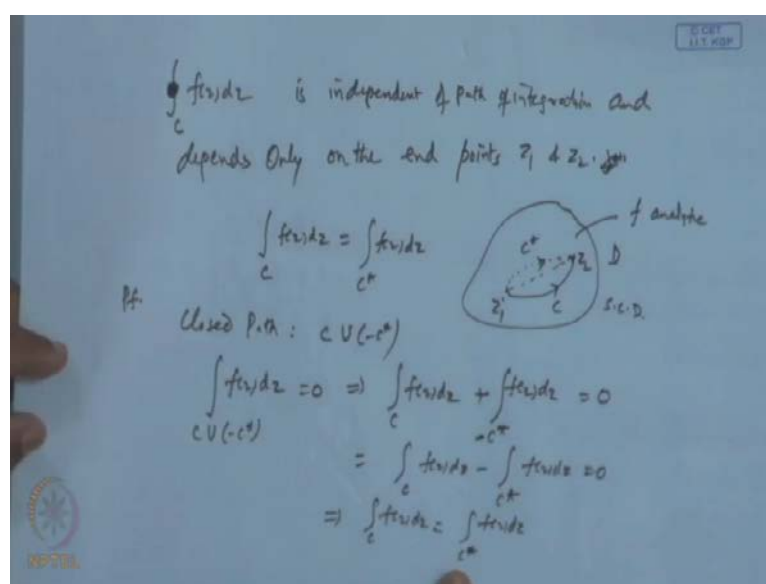 © CET
I.I.T. KGP
∫_C f(z)dz is independent of path of integration and
depends Only on the end points z₁ & z₂.
∫_C f(z)dz = ∫_{C*} f(z)dz
f analytic
C*
z₂
D
z₁
C
S.C.D.
Pf.
Closed Path : C ∪ (-C*)
∫_{C ∪ (-C*)} f(z)dz = 0 ⇒ ∫_C f(z)dz + ∫_{-C*} f(z)dz = 0
= ∫_C f(z)dz - ∫_{C*} f(z)dz = 0
⇒ ∫_C f(z)dz = ∫_{C*} f(z)dz
NPTEL